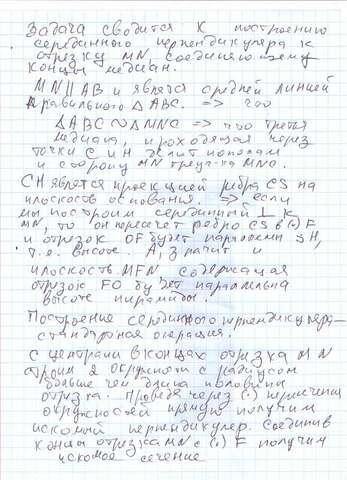 Задача сводится к построению
серединного перпендикуляра к
отрезку MN соединяющему
концы медиан.
MN || AB и являтся средней линией
правильного Δ ABC. => что
Δ ABC ∾ Δ MNC => что третья
медиана, проходящая через
точки C и H делит пополам
и сторону MN треуг-ка MNC.
CH является проекцией ребра CS на
плоскость основания. => если
мы построим серединный ⊥ к
MN, то он пересечет ребро CS в (·) F
и отрезок OF будет параллелен SH,
т.е. высоте. А, значит и
плоскость MFN содержащая
отрезок FO будет параллельна
высоте пирамиды.
Построение серединного перпендикуляра-
стандартная операция.
С центрами в концах отрезка MN
строим 2 окружности с радиусом
больше чем длина половины
отрезка. Проведя через (·) пересечения
окружностей прямую получим
искомый перпендикуляр. Соединив
концы отрезка MN с (·) F получим
искомое сечение